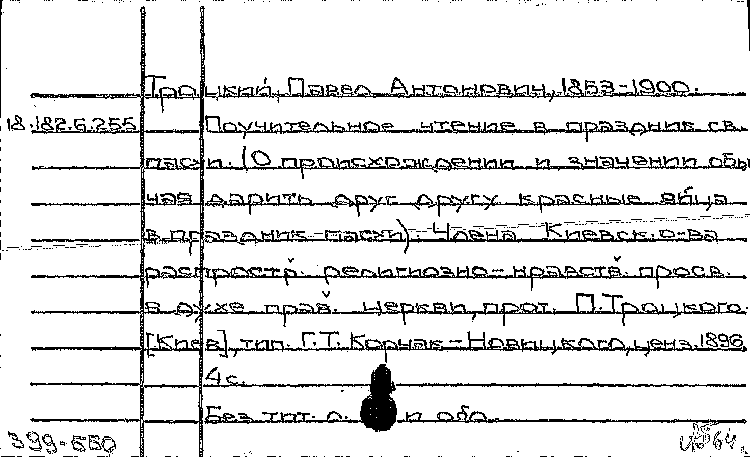 Троцкий, Павел Антонович, 1853-1900.
18.182.6.255 Поучительное чтение в праздник св.
пасхи. (О происхождении и значении обы
чая дарить друг другу красные яйца
в праздник пасхи). Члена Киевск. о-ва
распростр. религиозно-нравств. просв.
в духе прав. церкви, прот. П. Троцкого
[Киев], тип. Г.Т. Корчак-Новицкого, ценз. 1896
4 с.
Без тит. л. и обл.
399-550 64